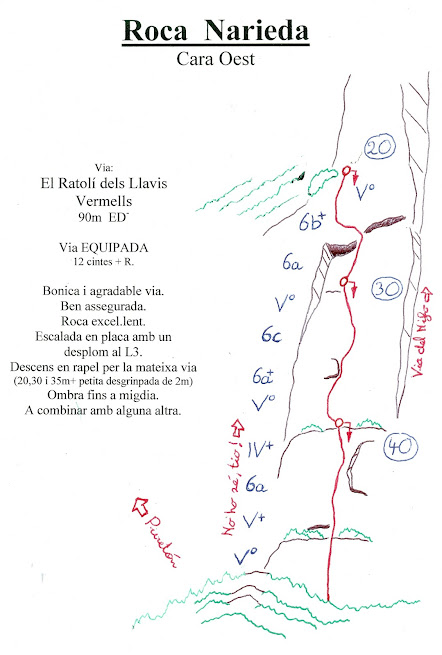 Roca Narieda
Cara Oest
Via:
El Ratolí dels Llavis
Vermells
90m ED-
Via EQUIPADA
12 cintes + R.
Bonica i agradable via.
Ben assegurada.
Roca excel.lent.
Escalada en placa amb un
desplom al L3.
Descens en rapel per la mateixa via
(20,30 i 35m+ petita desgrinpada de 2m)
Ombra fins a migdia.
A combinar amb alguna altra.
20
Vº
6b+
6a
30
Vº
6c
6a+
Vº
IV+
40
6a
V+
Vº
Via del Niño
No ho sé, tio!